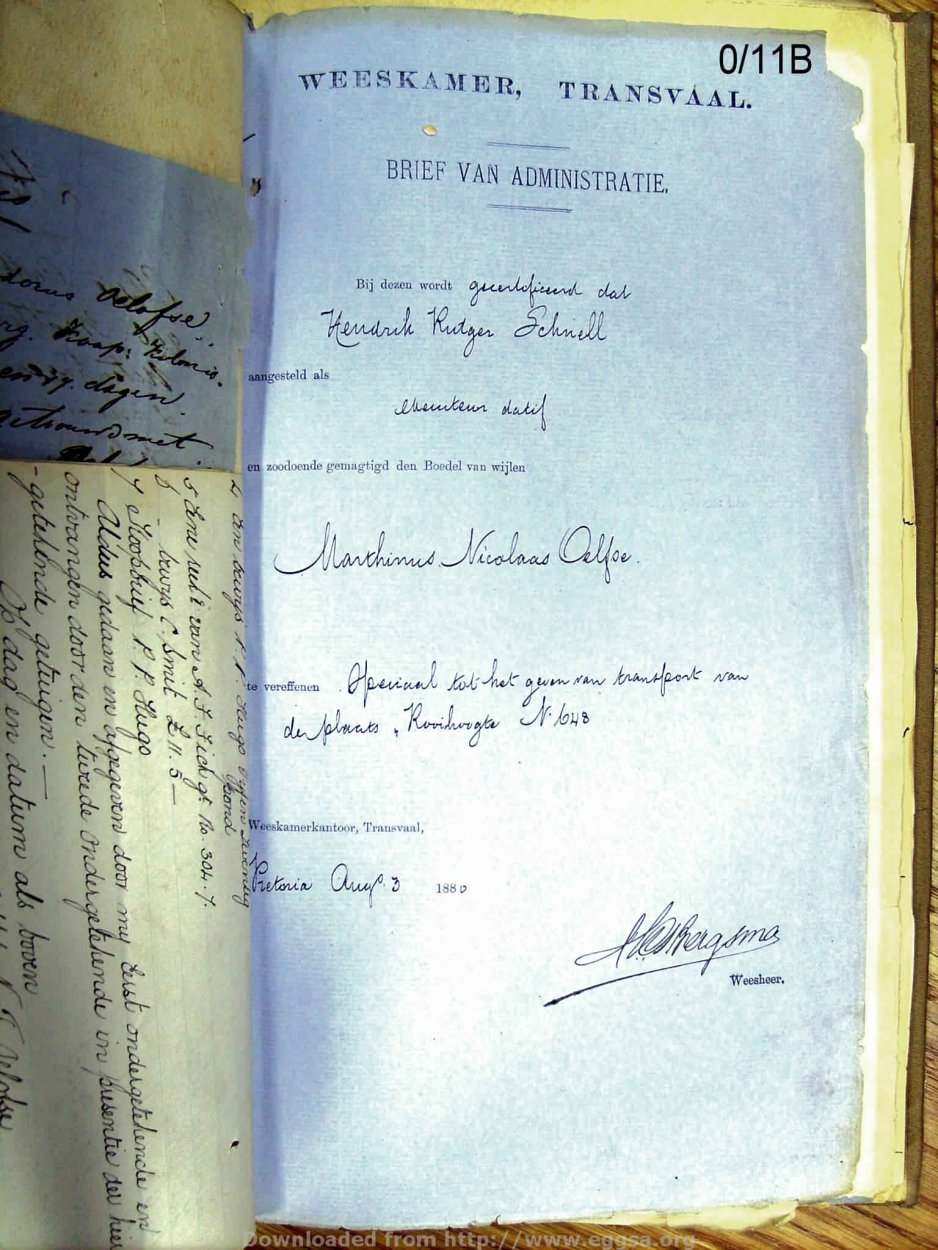 0/11B
WEESKAMER, TRANSVAAL.
BRIEF VAN ADMINISTRATIE.
Bij dezen wordt gecertificeerd dat
Hendrik Rutger Schnell
aangesteld als
executeur datif
en zoodoende gemagtigd den Boedel van wijlen
Marthinus Nicolaas Oelfse.
te vereffenen Speciaal tot het geven van transport van
de plaats „Rooihoogte N. 648
Weeskamerkantoor, Transvaal,
Pretoria Augs. 3 1880
Bergsma
Weesheer.
Oelofse
dagen
getrouwd met
bewijs C. Smit £11.5—
P. P. Hugo
Aldus gedaan en afgegeven door my Eerst ondergetekende en
ontvangen door den tweede ondergetekende in presentie der hier
getekende getuigen.—
dag en datum als boven
Downloaded from http://www.eggsa.org